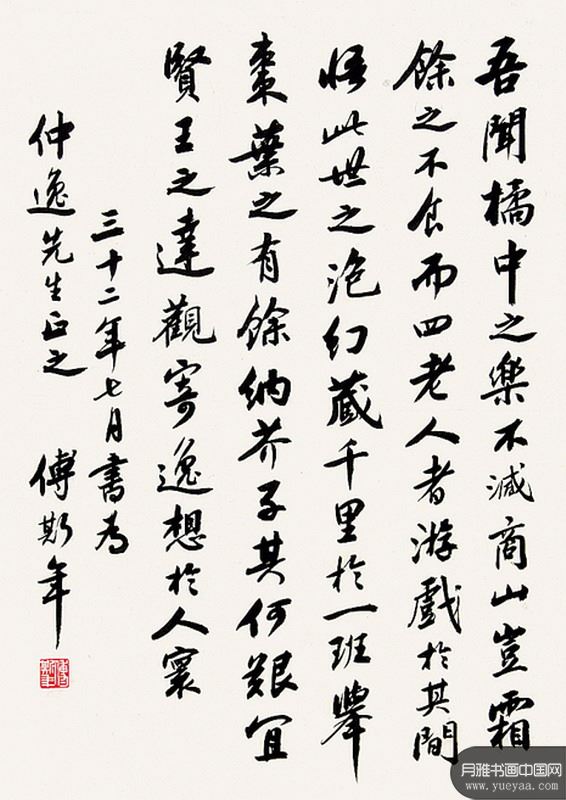 吾聞橘中之樂不減商山豈霜
餘之不食而四老人者游戲於其間
悟此世之泡幻藏千里於一班舉
棗葉之有餘納芥子其何艱宜
賢王之達觀寄逸想於人寰
三十二年七月書為
仲逸先生正之
傅斯年
月雅书画中国网
www.yueyaa.com